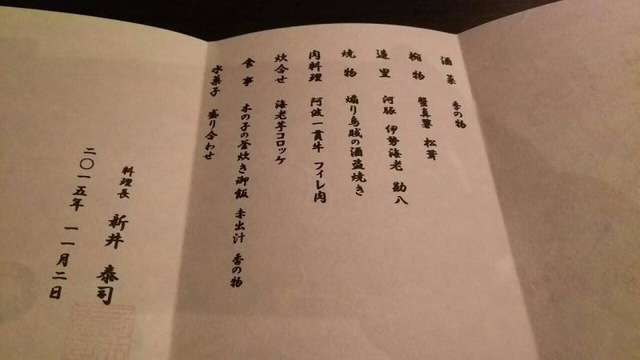 酒菜 季の物
椀物 蟹真薯 松茸
造里 河豚 伊勢海老 勘八
焼物 煽り烏賊の酒盗焼き
肉料理 阿波一貫牛 フィレ肉
炊合せ 海老芋コロッケ
食事 木の子の釜炊き御飯 赤出汁 香の物
水菓子 盛り合わせ
料理長 新井 泰司
二〇一五年 一一月二日